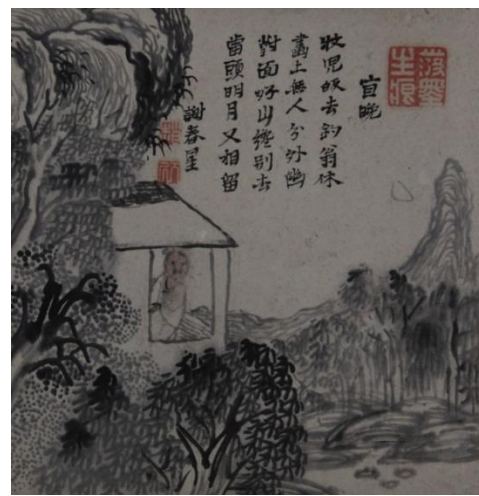 潑墨生痕
宜晚
牧児皈去釣翁休
畫上無人分外幽
對面好山纔別去
當頭明月又相留
謝春星